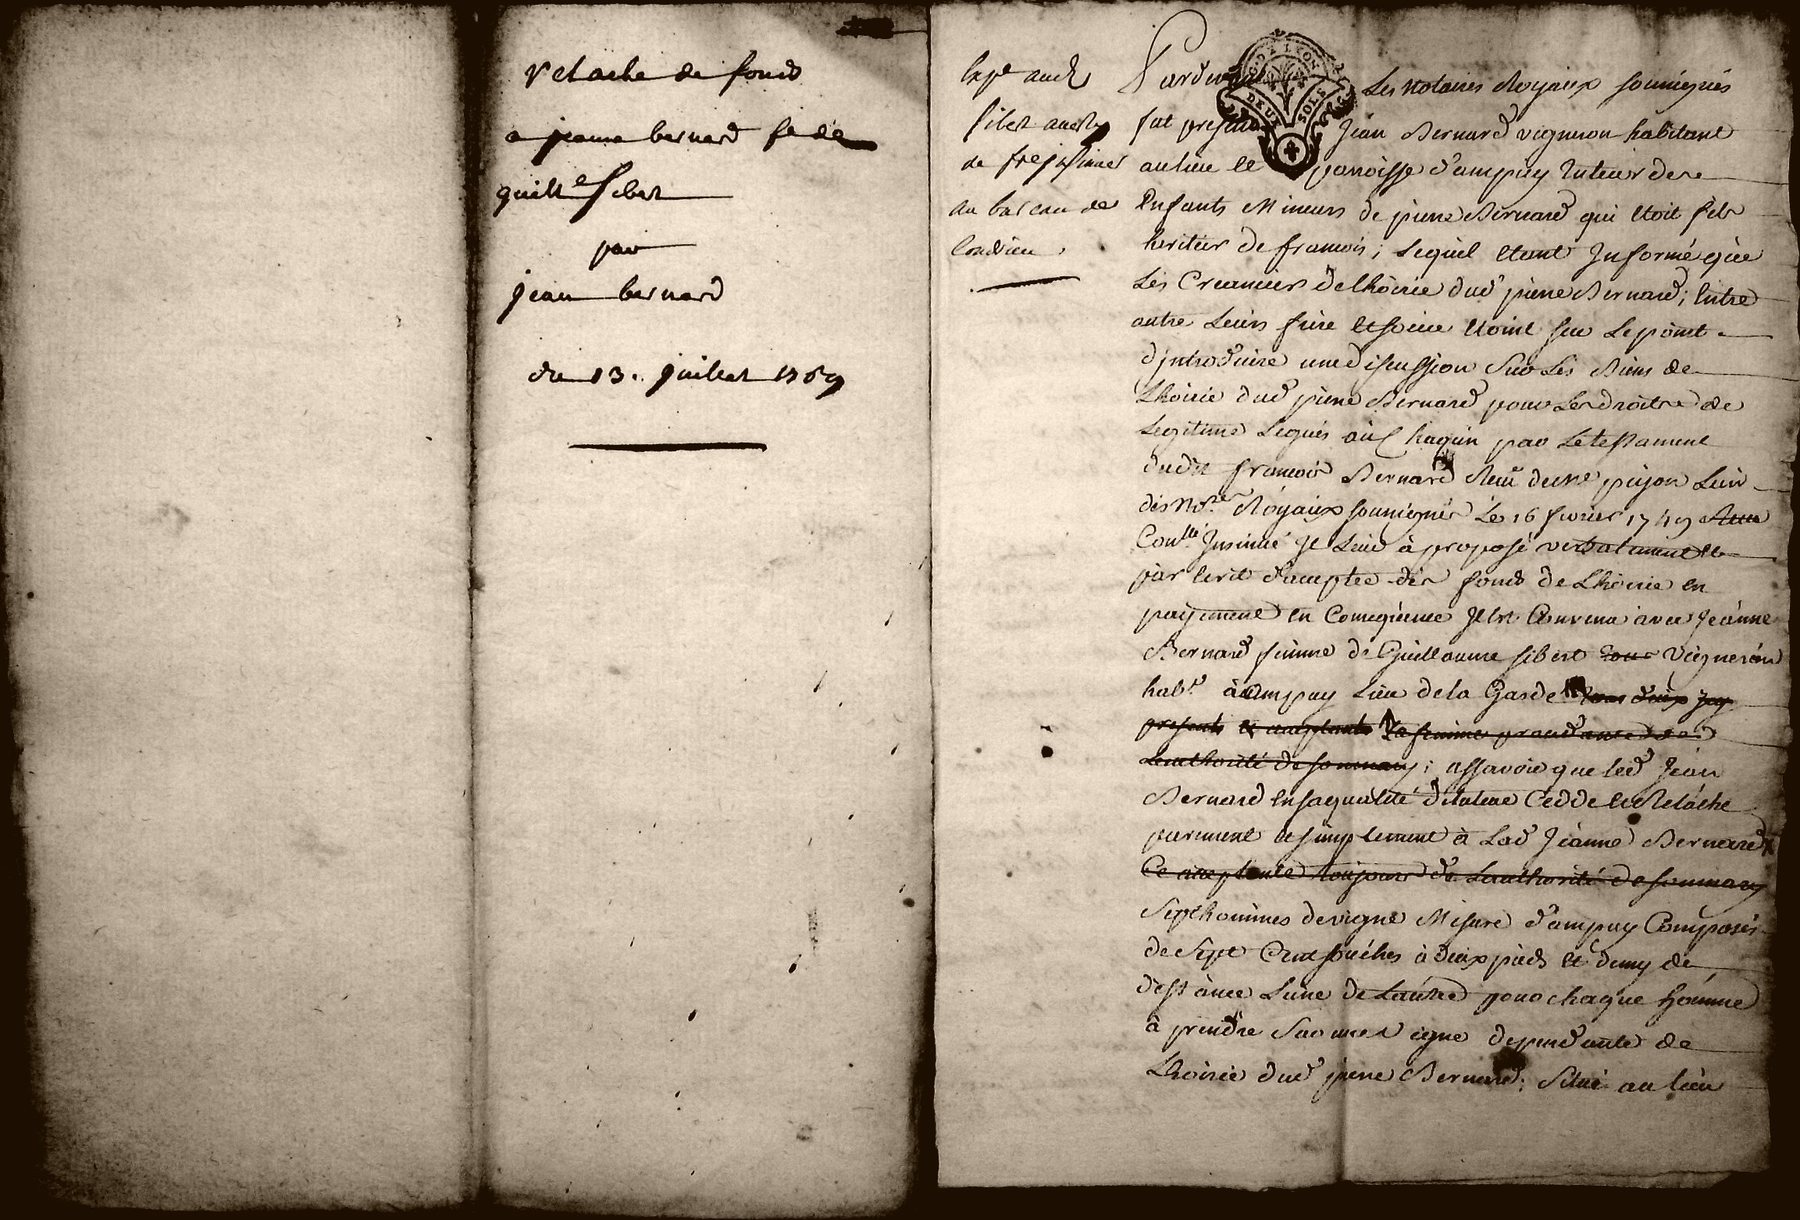 relache de fond
a jeanne bernard fe de
guille Sibert
par
jean bernard
du 13. juillet 1769
expe aud
Sibert
de
au bureau de
Condrieu
G. DE LYON
DEUX SOLS
Pardevant Les Notaires Royaux soussignés
fut present Jean Bernard vigneron habitant
au lieu et parroisse d'ampuy Tuteur des
Enfants Mineurs de pierre Bernard qui etoit fils
heritier de francois ; Lequel etant Informé que
Les Creanciers de lhoirie dud pierre Bernard ; Entre
autre Leurs frere et soeur etoint sur Le point
d'introduire une discussion Sur Les Biens de
Lhoirie dud pierre Bernard pour Les droits de
Legitime Legués a Chaqun par Le testament
dudit francois Bernard Receu de me pujon L'un
des Nores Royaux soussignés Le 16 fevrier 1749
Conllé Insinué Il Leur a proposé verbalement et
par Ecrit d'accepter des fonds de Lhoirie en
payement en Consequence Il est Convenu avec Jeanne
Bernard femme de Guillaume Sibert vigneron
habt a ampuy Lieu de la Garde tous deux Icy
presents et acceptants La femme procedante de
Lauthorité de son mary ; assavoir que led Jean
Bernard En sa qualité de tuteur Cedde et Relache
purement et simplement a Lad Jeanne Bernard
Ce acceptante toujours de Lauthorité de son mary
Sept hommes de vigne Mesure d'ampuy Composés
de Sept Cent souches a deux pieds et demy de
distance L'une de Lautre pour chaque homme
a prendre Sur une vigne dependante de
Lhoirie dud pierre Bernard ; Situé au lieu